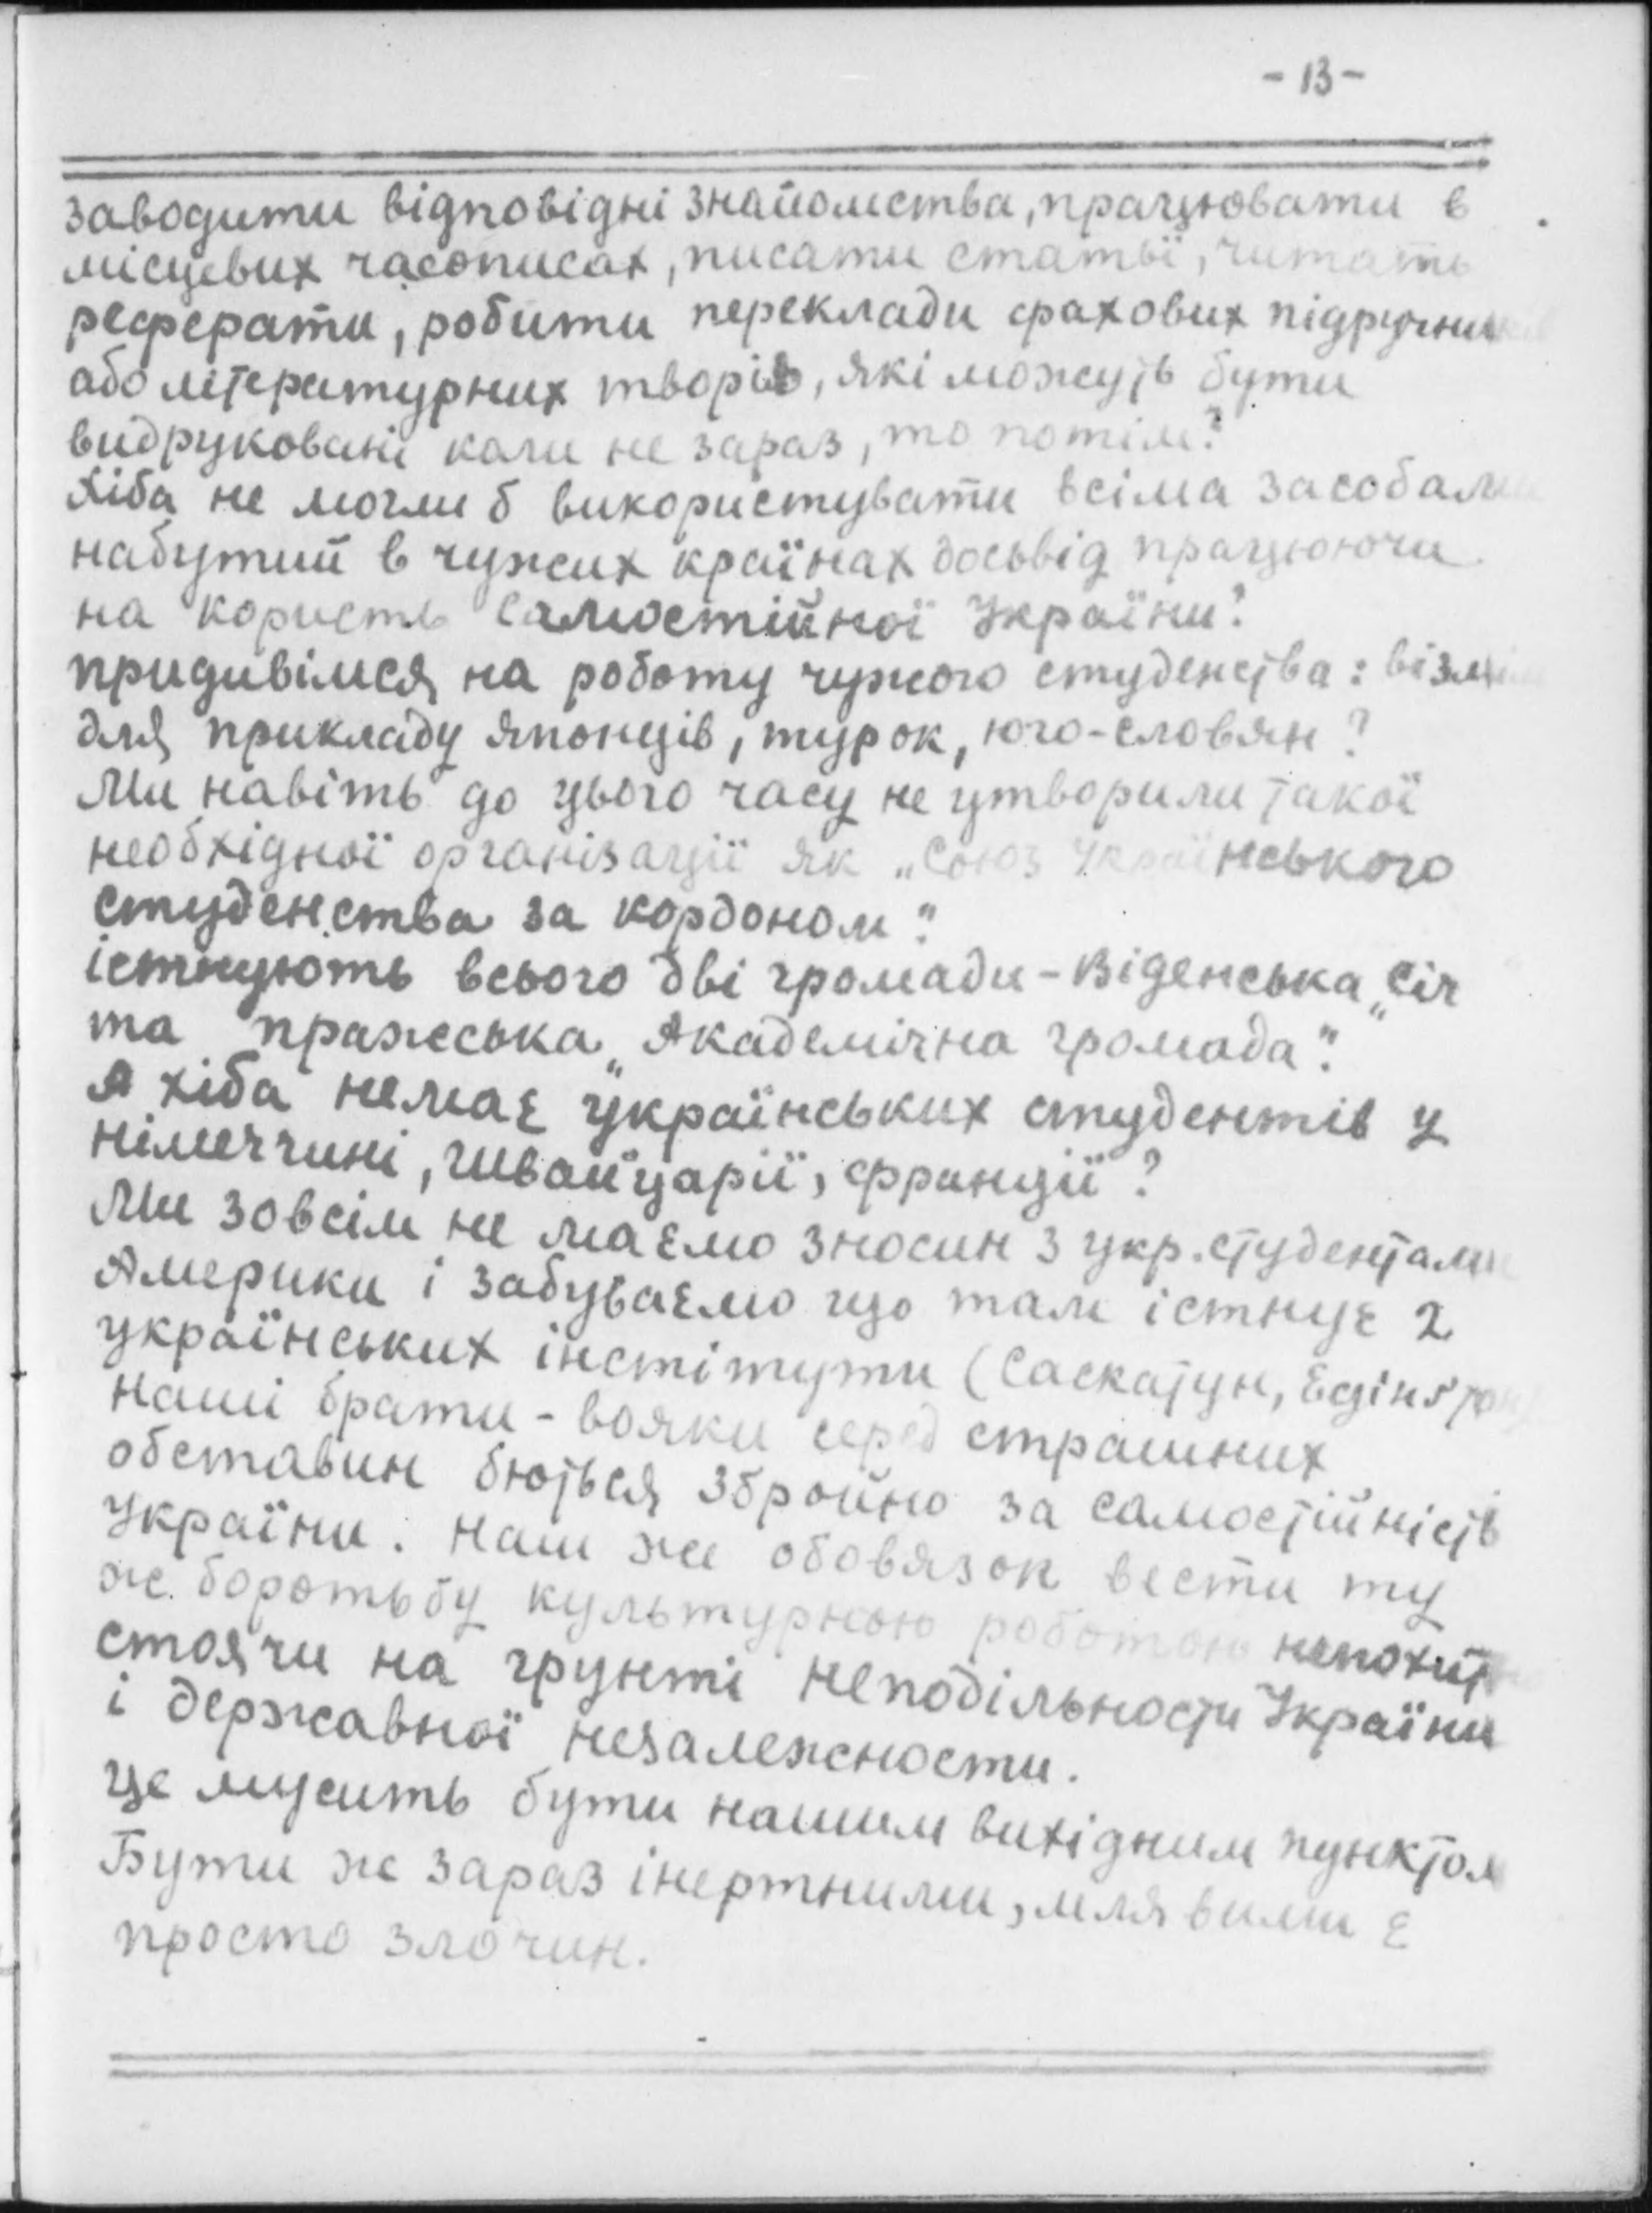 - 13 -
заводити відповідні знайомства, працювати в
місцевих часописах, писати статьї, читать
реферати, робити переклади фахових підручників
або літературних творів, які можуть бути
видруковані коли не зараз, то потім?
Хіба не могли б використувати всіма засобами
набутий в чужих країнах досьвід працюючи
на користь самостійної України?
придивімся на роботу чужого студенства: візмім
для прикладу японців, турок, юго-словян?
Ми навіть до цього часу не утворили такої
необхідної організації як „Союз Українського
студенства за кордоном".
істнують всього дві громади - Віденська „Січ
та пражська „Академічна громада".
А хіба немає українських студентів у
Німеччині, Швайцарії, Франції?
Ми зовсім не маємо зносин з укр. студентами
Америки і забуваємо що там істнує 2
українських інстітути (Саскатун,
Наші брати - вояки серед страшних
обставин бються збройно за самостійність
України. Наш же обовязок вести ту
ж боротьбу культурною роботою непохитно
стоячи на грунті неподільности України
і державної незалежности.
Це мусить бути нашим вихідним пунктом
Бути ж зараз інертними, млявими є
просто злочин.